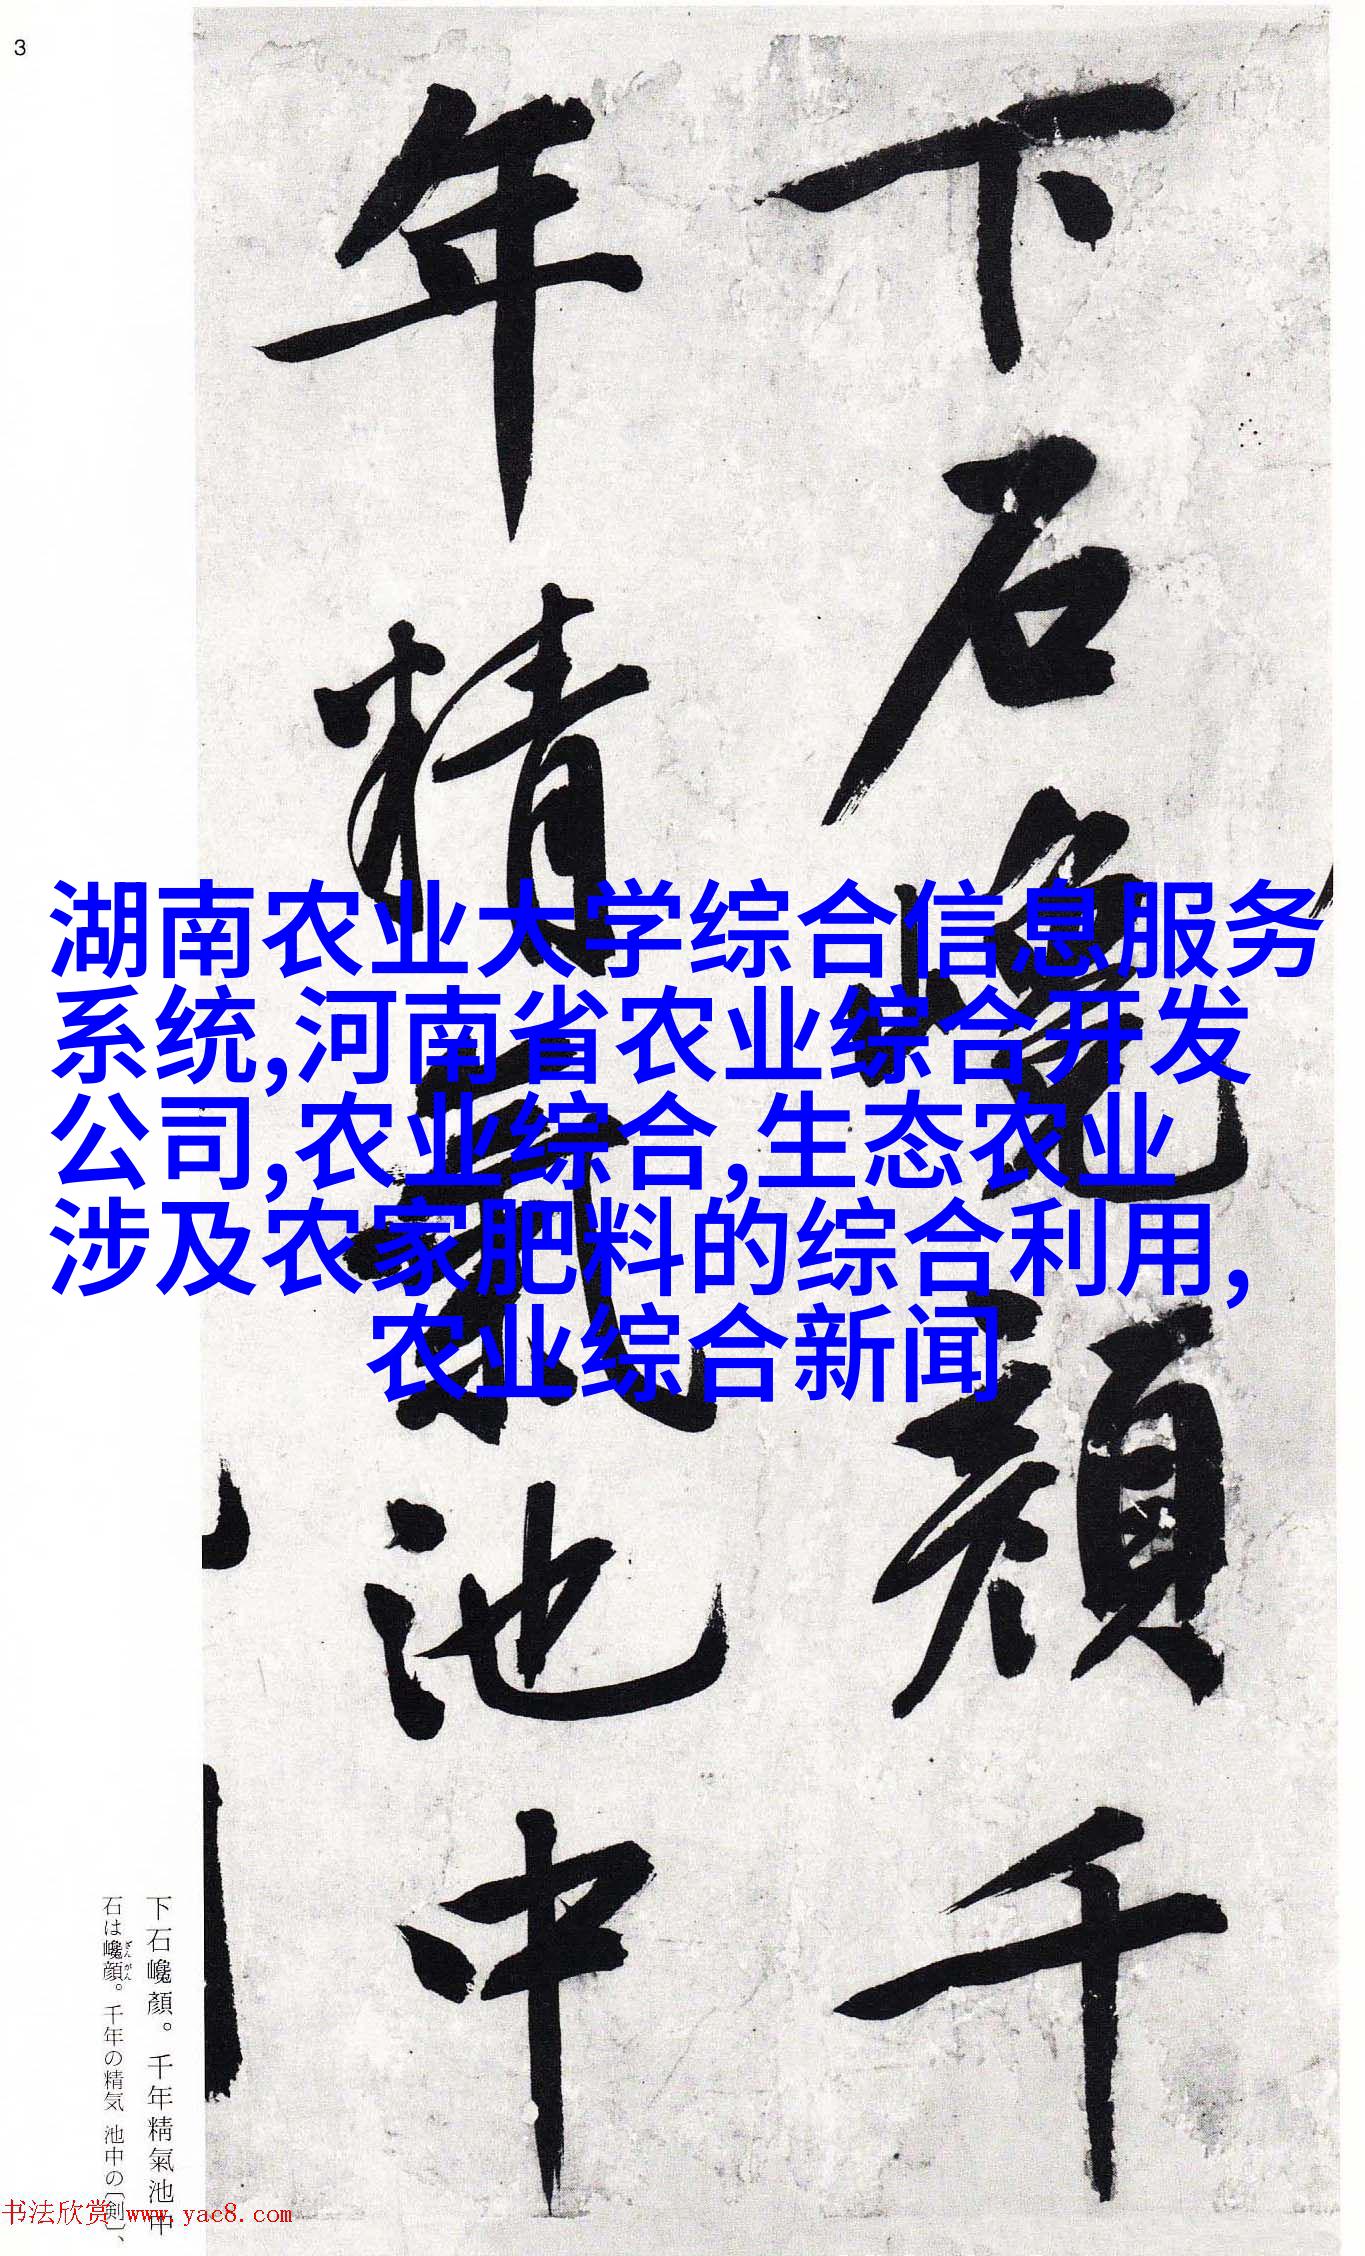 3
下石巉顏千
年精氣池中
湖南农业大学综合信息服务
系统,河南省农业综合开发
公司,农业综合,生态农业
涉及农家肥料的综合利用,
农业综合新闻
下石巉顏。千年精氣池中
石は巉顔。千年の精気 池中の〔剣〕、
ざんがん
书法欣赏 www.yac8.com